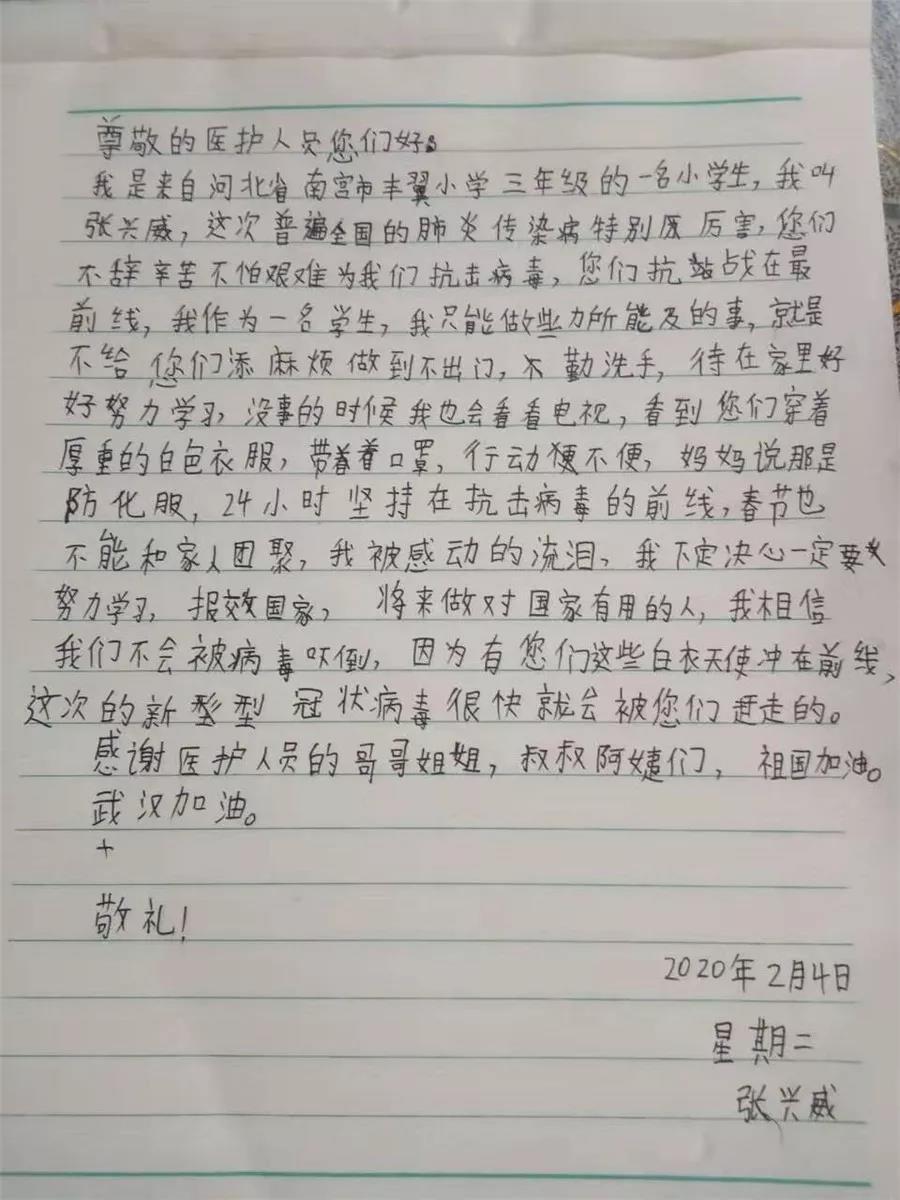 尊敬的医护人员您们好。
我是来自河北省南宫市丰翼小学三年级的一名小学生，我叫
张兴威，这次普遍全国的肺炎传染病特别厉害，您们
不辞辛苦不怕艰难为我们抗击病毒，您们抗站战在最
前线，我作为一名学生，我只能做些力所能及的事，就是
不给您们添麻烦做到不出门，不勤洗手，待在家里好
好努力学习，没事的时候我也会看看电视，看到您们穿着
厚重的白色衣服，带着着口罩，行动不便，妈妈说那是
防化服，24小时坚持在抗击病毒的前线，春节也
不能和家人团聚，我被感动的流泪，我下定决心一定要
努力学习，报效国家，将来做对国家有用的人，我相信
我们不会被病毒吓倒，因为有您们这些白衣天使冲在前线，
这次的新型型冠状病毒很快就会被您们赶走的。
感谢医护人员的哥哥姐姐，叔叔阿姨们，祖国加油。
武汉加油。
+
敬礼！
2020年2月4日
星期二
张兴威